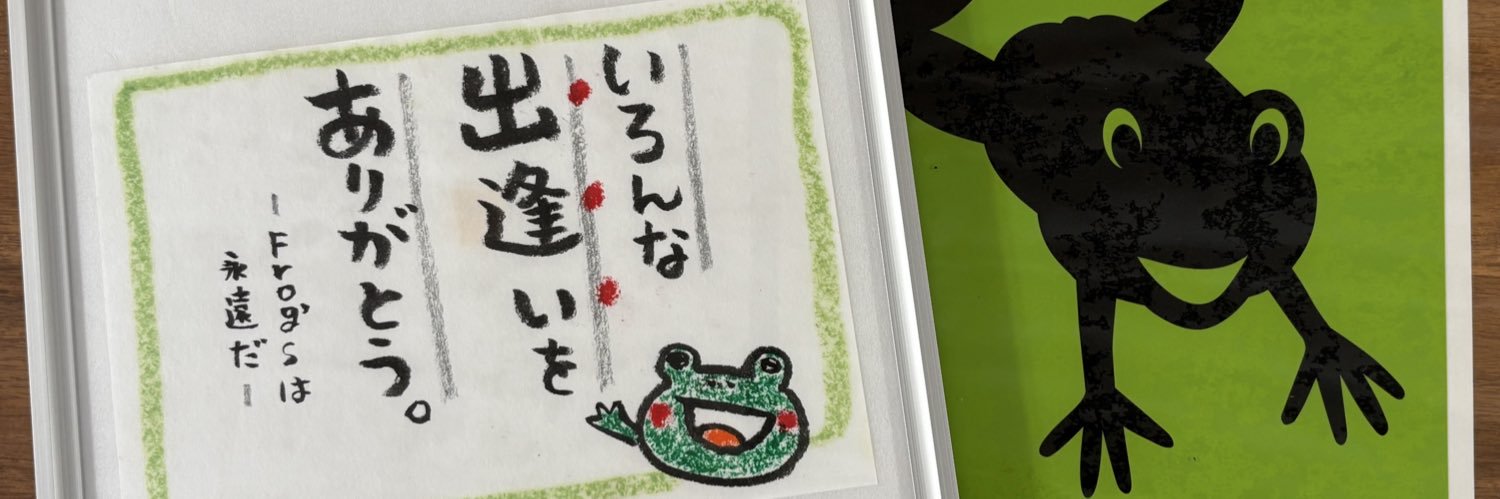 いろんな
出逢いを
ありがとう。
－Frogsは
永遠だ－